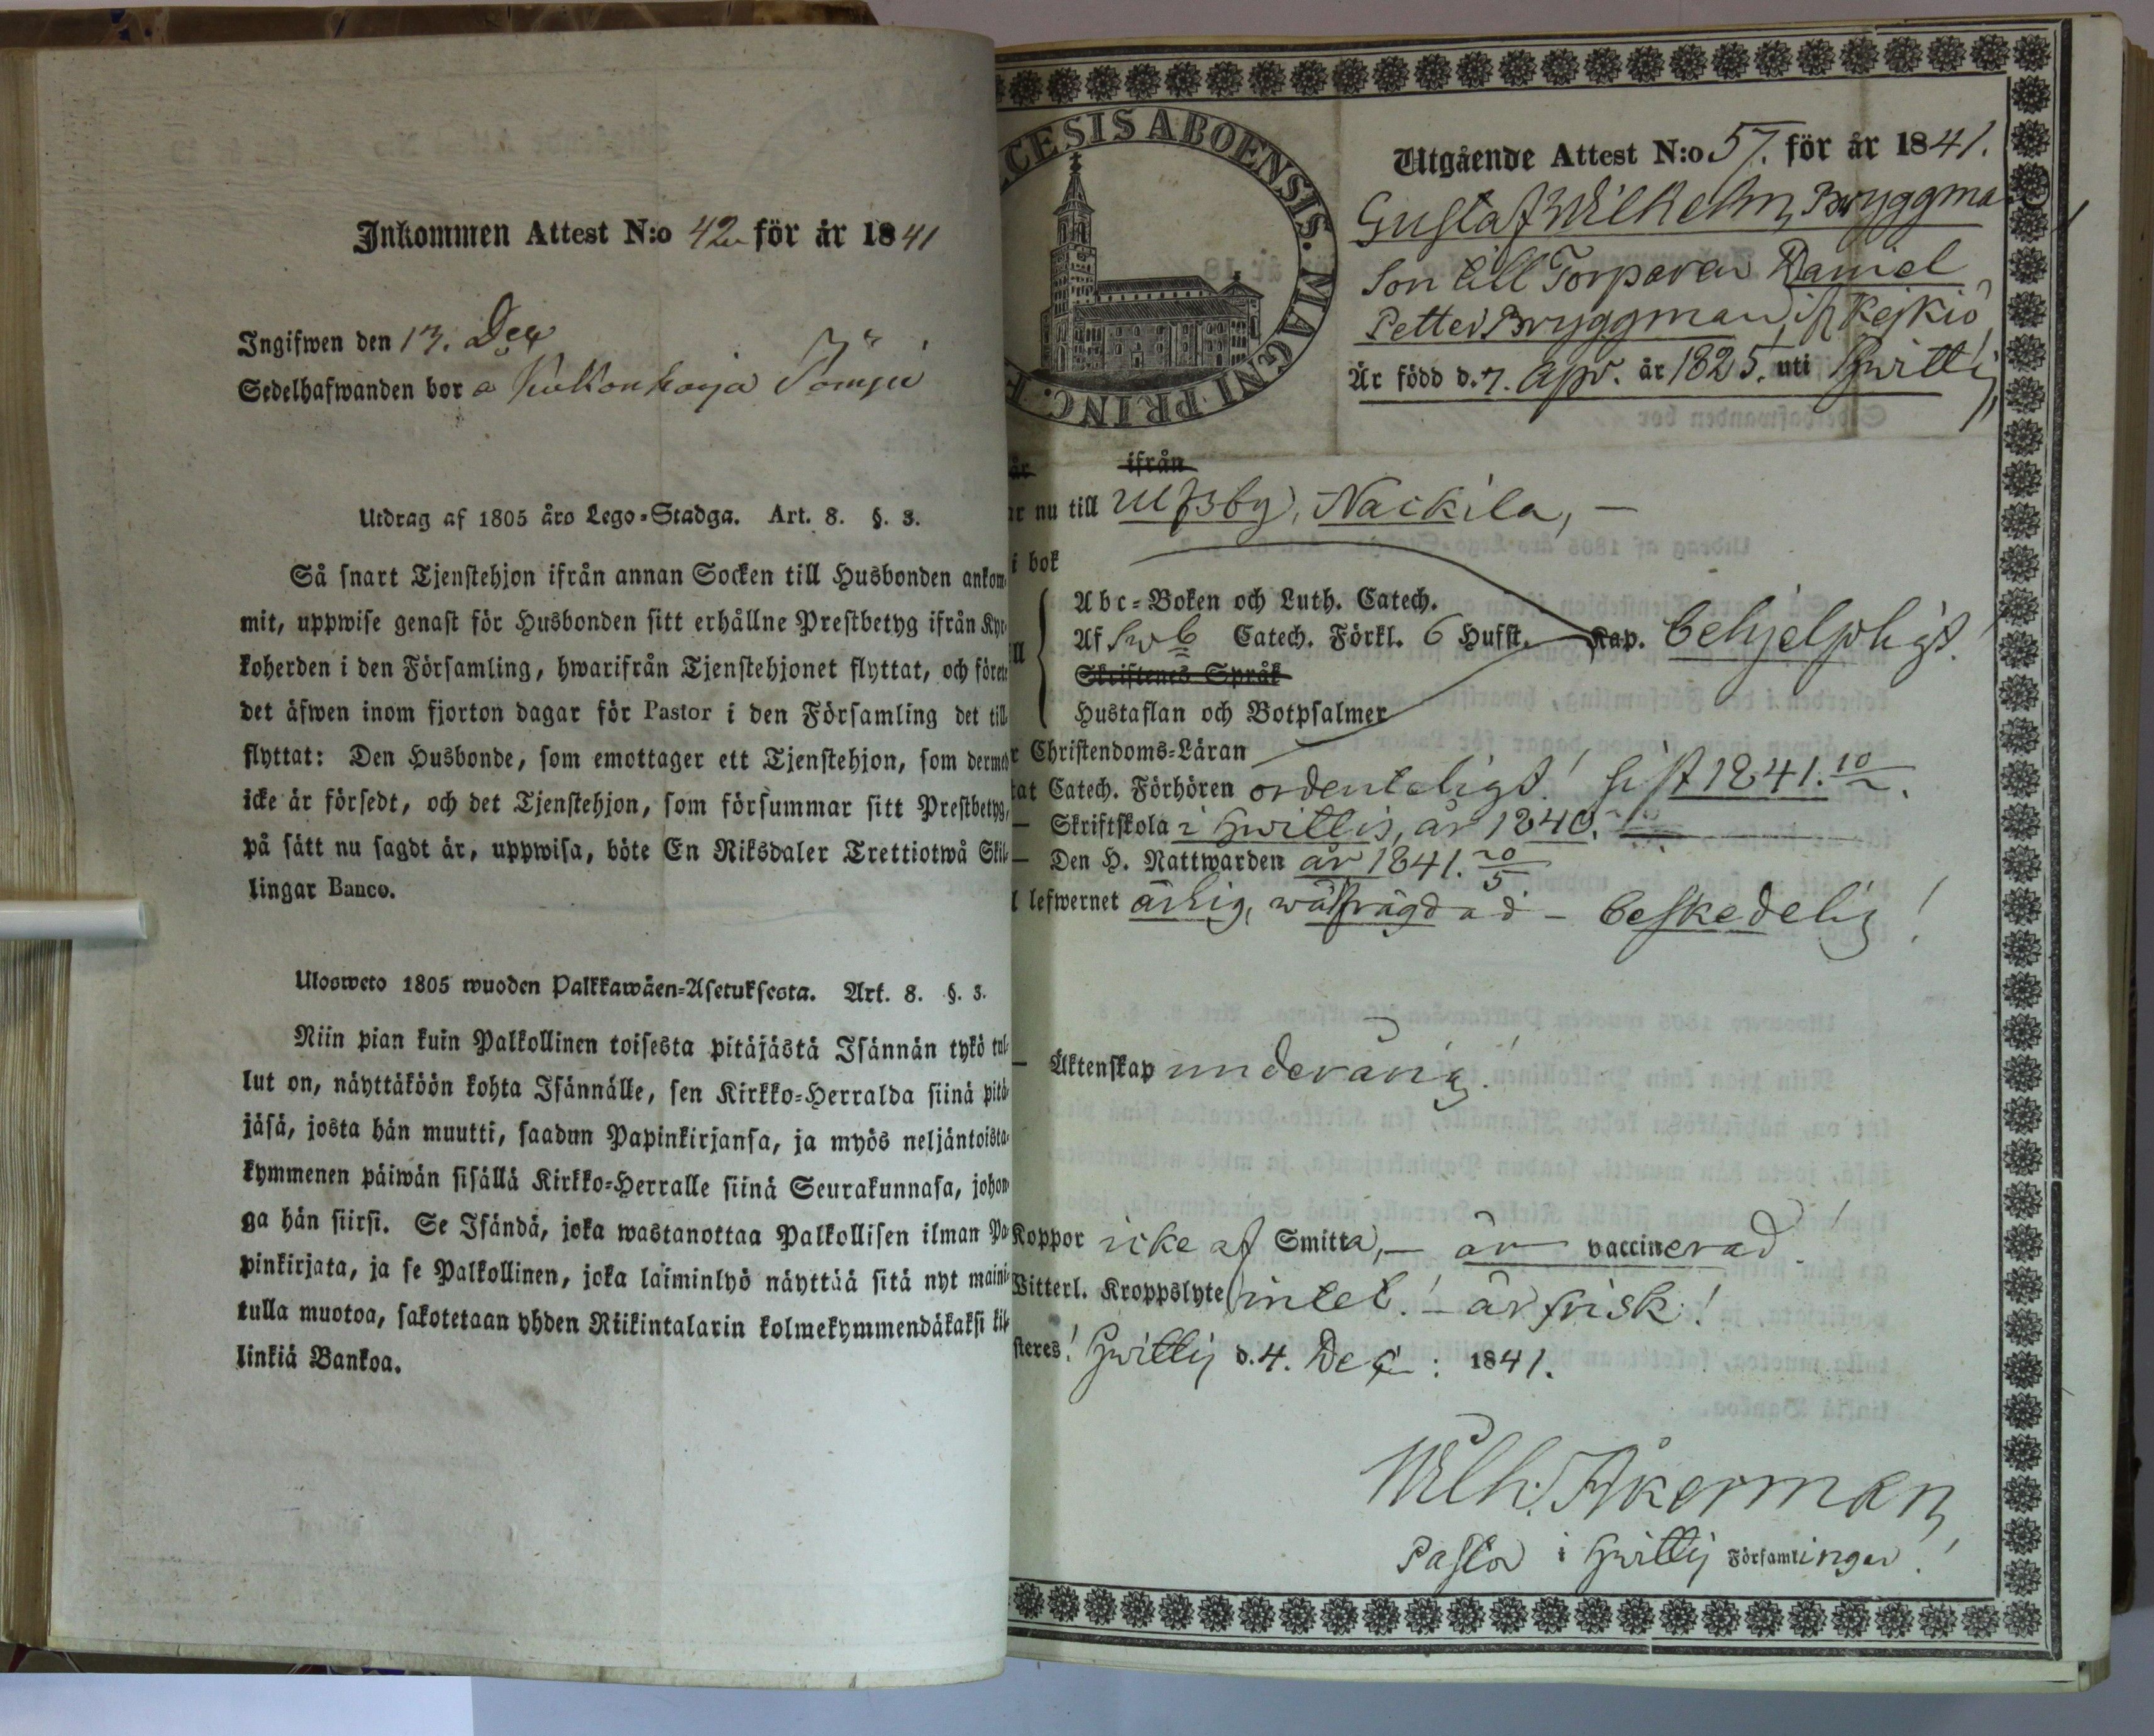 Inkommen Attest N:o 42 för år 1841
Ingifwen den 13. Dec
Sedelhafwanden bor a Kukonharja
Utdrag af 1805 års Lego-Stadga. Art. 8. §. 3.
Så snart Tjenstehjon ifrån annan Socken till Husbonden ankom-
mit, uppwise genast för Husbonden sitt erhållne Prestbetyg ifrån Kyr-
koherden i den Församling, hwarifrån Tjenstehjonet flyttat, och förete
det äfwen inom fjorton dagar för Pastor i den Församling det till-
flyttat: Den Husbonde, som emottager ett Tjenstehjon, som dermed
icke är försedt, och det Tjenstehjon, som försummar sitt Prestbetyg,
på sätt nu sagdt är, uppwisa, böte En Riksdaler Trettiotwå Skil-
lingar Banco.
Ulosweto 1805 wuoden Palkkawäen-Asetuksesta. Art. 8. §. 3.
Niin pian kuin Palkollinen toisesta pitäjästä Isännän tykö tul-
lut on, näyttäköön kohta Isännälle, sen Kirkko-Herralda siinä pitä-
jäsä, josta hän muutti, saadun Papinkirjansa, ja myös neljäntoista-
kymmenen päiwän sisällä Kirkko-Herralle siinä Seurakunnasa, johon-
ga hän siirsi. Se Isändä, joka wastanottaa Palkollisen ilman Pa-
pinkirjata, ja se Palkollinen, joka laiminlyö näyttää sitä nyt maini-
tulla muotoa, sakotetaan yhden Riikintalarin kolmekymmendäkaksi kil-
linkiä Bankoa.
CESIS ABOENSIS. MAGNI PRINC. F
Utgående Attest N:o 57. för år 1841.
Gustaf Wilhelm Bryggman
Son till Torparen Daniel
Petter Bryggman, if Keikiö
Är född d. 7. Apr. år 1825. uti Hwittis,
är ifrån
ar nu till Ulfsby, Nackila, —
i bok
Abc-Boken och Luth. Catech.
ll Af Sweb Catech. Förkl. 6 Hufst. Kap. behjelpligt!
Skriftenes Språk
Hustaflan och Botpsalmer
r Christendoms-Läran
tat Catech. Förhören ordenteligt! sist 1841. 10/2.
— Skriftskola i Hwittis, år 1840.
— Den H. Nattwarden år 1841. 20/5
l lefwernet ärlig, wälfrägdad — beskedelig!
— Äktenskap underårig!
Koppor icke af Smitta, — är vaccinerad!
Witterl. Kroppslyte intet! — är frisk!
steres! Hwittis d. 4. Dec: 1841.
Wilh. Åkerman,
Pastor i Hwittis Församlingar!